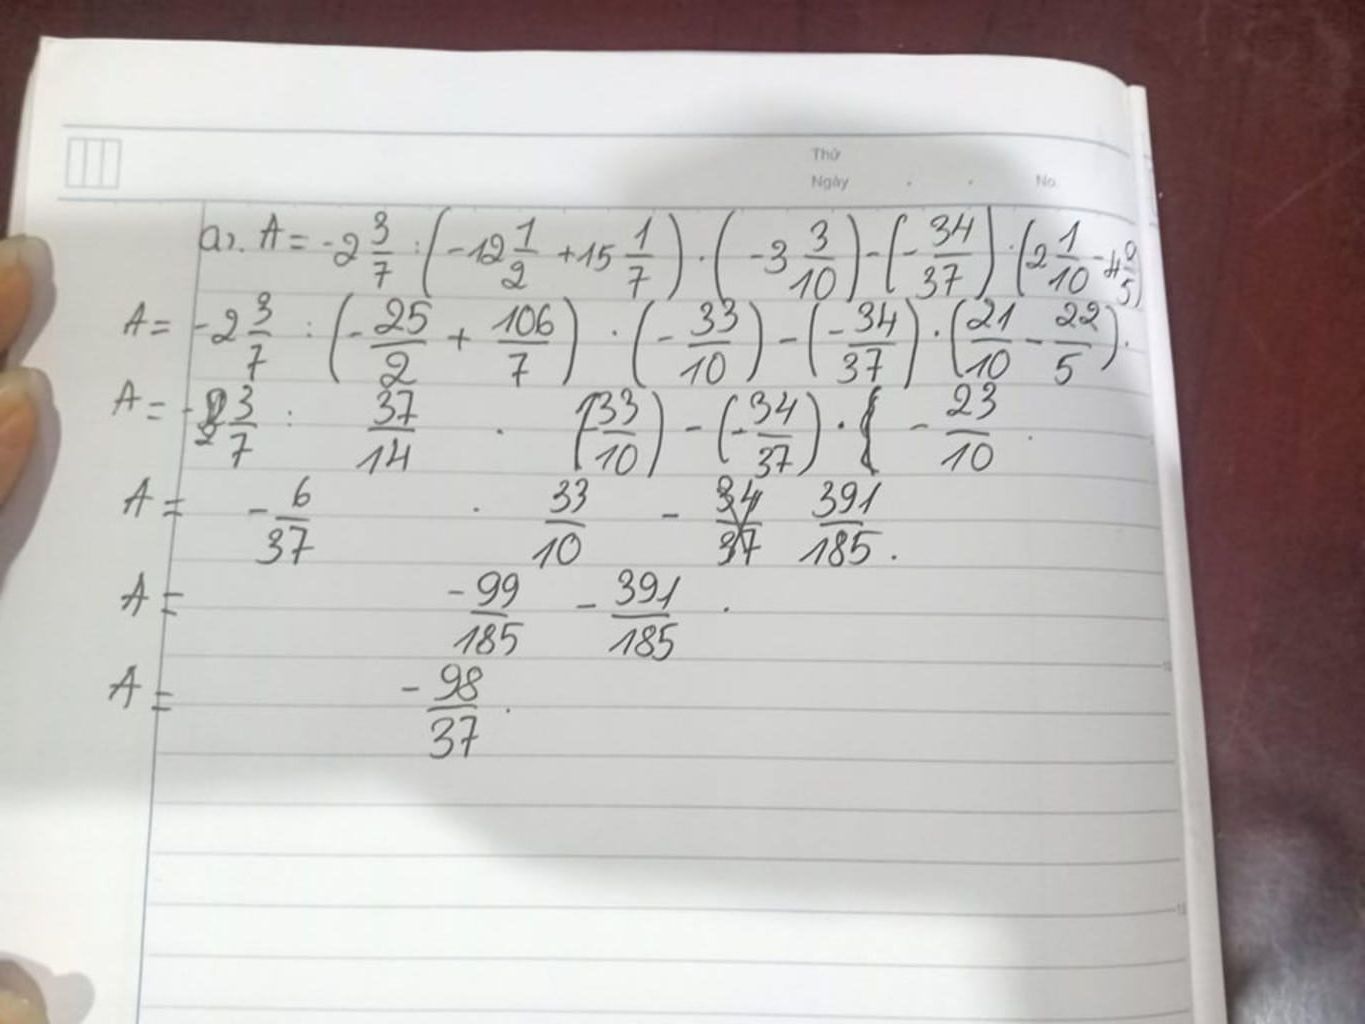 Thứ
Ngày . . No.
a). A = -2 3/7 : (-12 1/2 + 15 1/7) . (-3 3/10) - (-34/37) . (2 1/10 - 4 2/5)
A = -2 3/7 : (-25/2 + 106/7) . (-33/10) - (-34/37) . (21/10 - 22/5).
A = -2 3/7 : 37/14 . (-33/10) - (-34/37) . ( - 23/10 .
A = -6/37 . 33/10 - 391/185 .
A = -99/185 - 391/185 .
A = -98/37 .